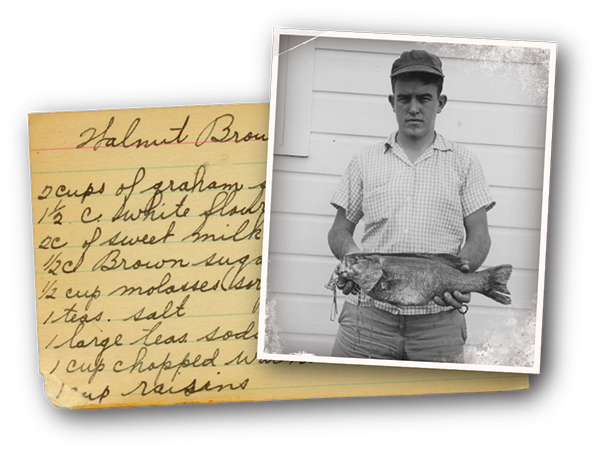 Walnut Brow
2 cups of graham
1½ C. white flour
2c of sweet milk
½c Brown suga
½ cup molasses
1 teas. salt
1 large teas. sod
1 cup chopped
1 cup raisins